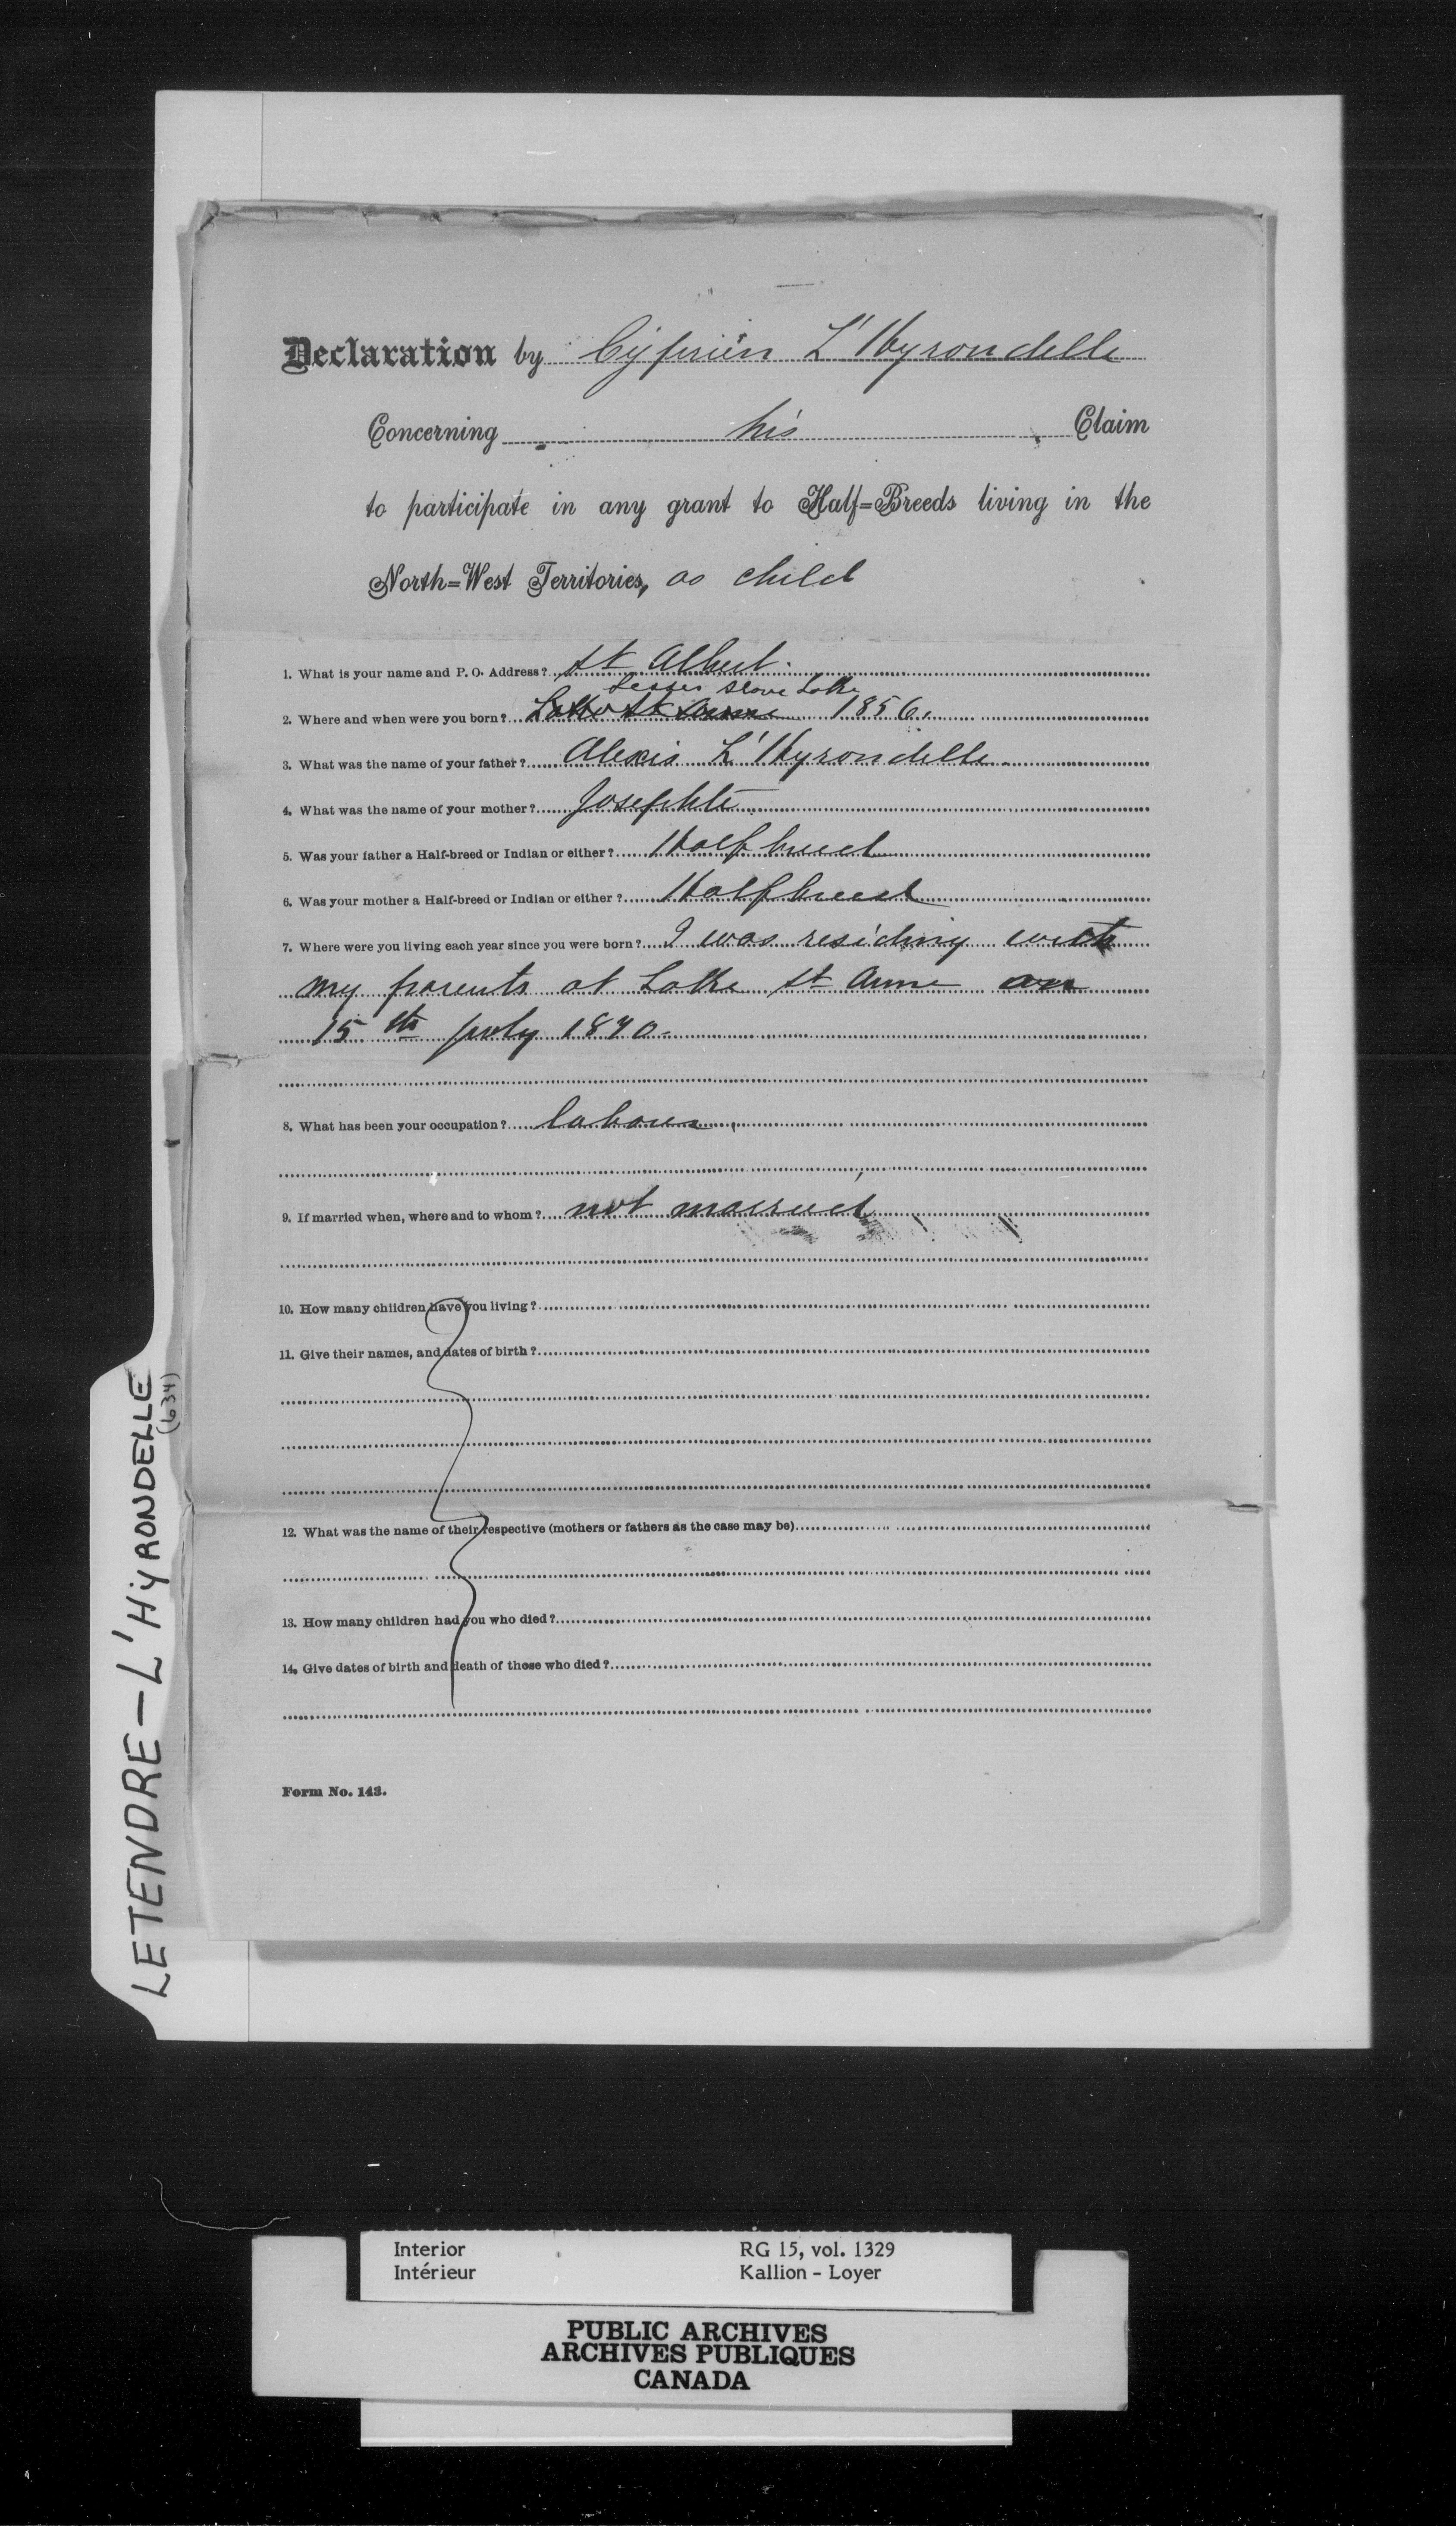 Declaration by Cyprien L'Hyrondelle
Concerning his Claim
to participate in any grant to Half=Breeds living in the
North=West Territories, as child
1. What is your name and P. O. Address? St Albert.
Lesser Slave Lake
2. Where and when were you born? Lake St Anne 1856.
3. What was the name of your father? Alexis L'Hyrondelle
4. What was the name of your mother? Josephte
5. Was your father a Half-breed or Indian or either? Halfbreed
6. Was your mother a Half-breed or Indian or either? Halfbreed
7. Where were you living each year since you were born? I was residing with
my parents at Lake St Anne on
15th July 1870.
8. What has been your occupation? labour
9. If married when, where and to whom? not married
10. How many children have you living?
11. Give their names, and dates of birth?
12. What was the name of their respective (mothers or fathers as the case may be)
13. How many children had you who died?
14. Give dates of birth and death of those who died?
Form No. 143.
LETENDRE - L'HYRONDELLE
(634)
Interior RG 15, vol. 1329
Intérieur Kallion - Loyer
PUBLIC ARCHIVES
ARCHIVES PUBLIQUES
CANADA